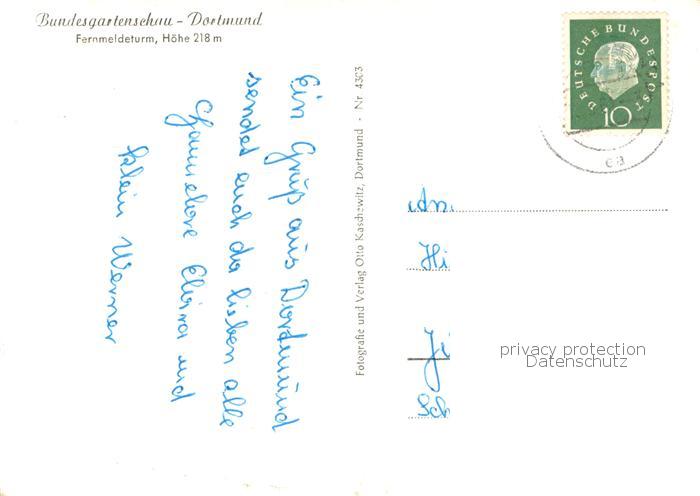 Bundesgartenschau - Dortmund
Fernmeldeturm, Höhe 218 m
Ein Gruß aus Dortmund
sendet euch da lieben alle
Channelore Clära und
klein Werner
Fotografie und Verlag Otto Kaschewitz, Dortmund · Nr. 4303
DEUTSCHE BUNDESPOST
10
ea
An.
Hi
Sch
privacy protection
Datenschutz